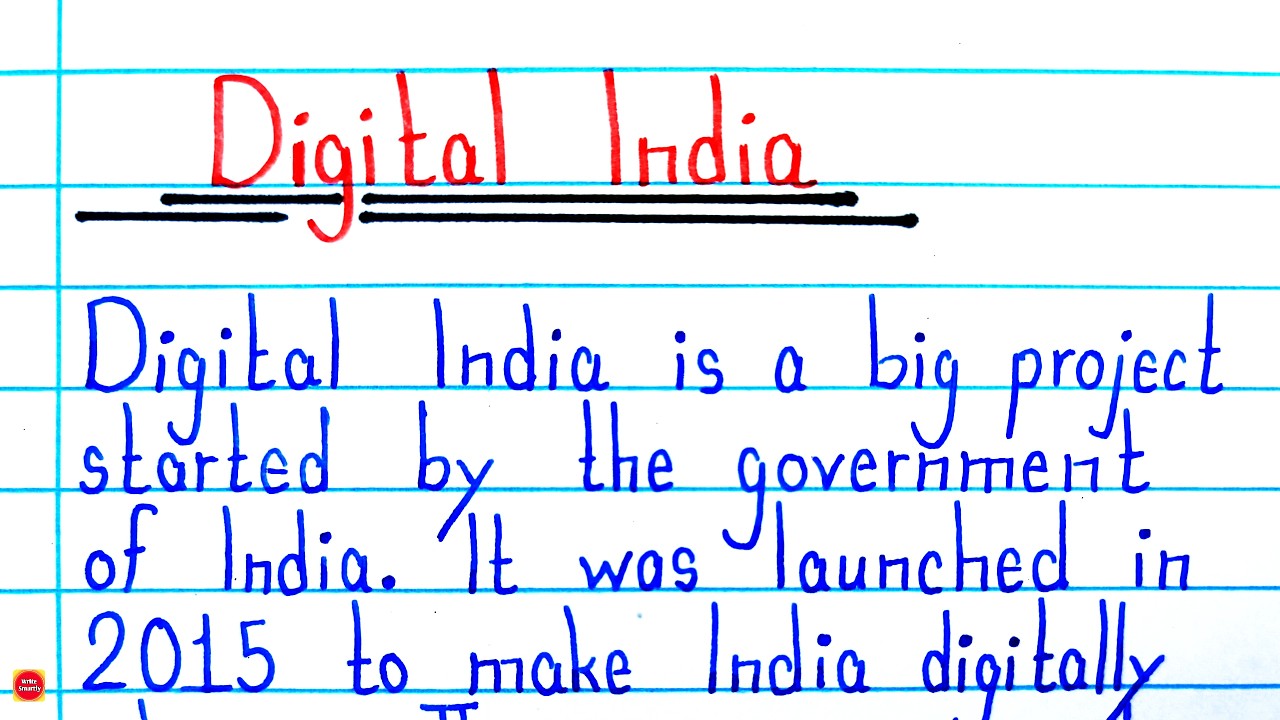 Digital India
Digital India is a big project
started by the government
of India. It was launched in
2015 to make India digitally
Write
Smartly